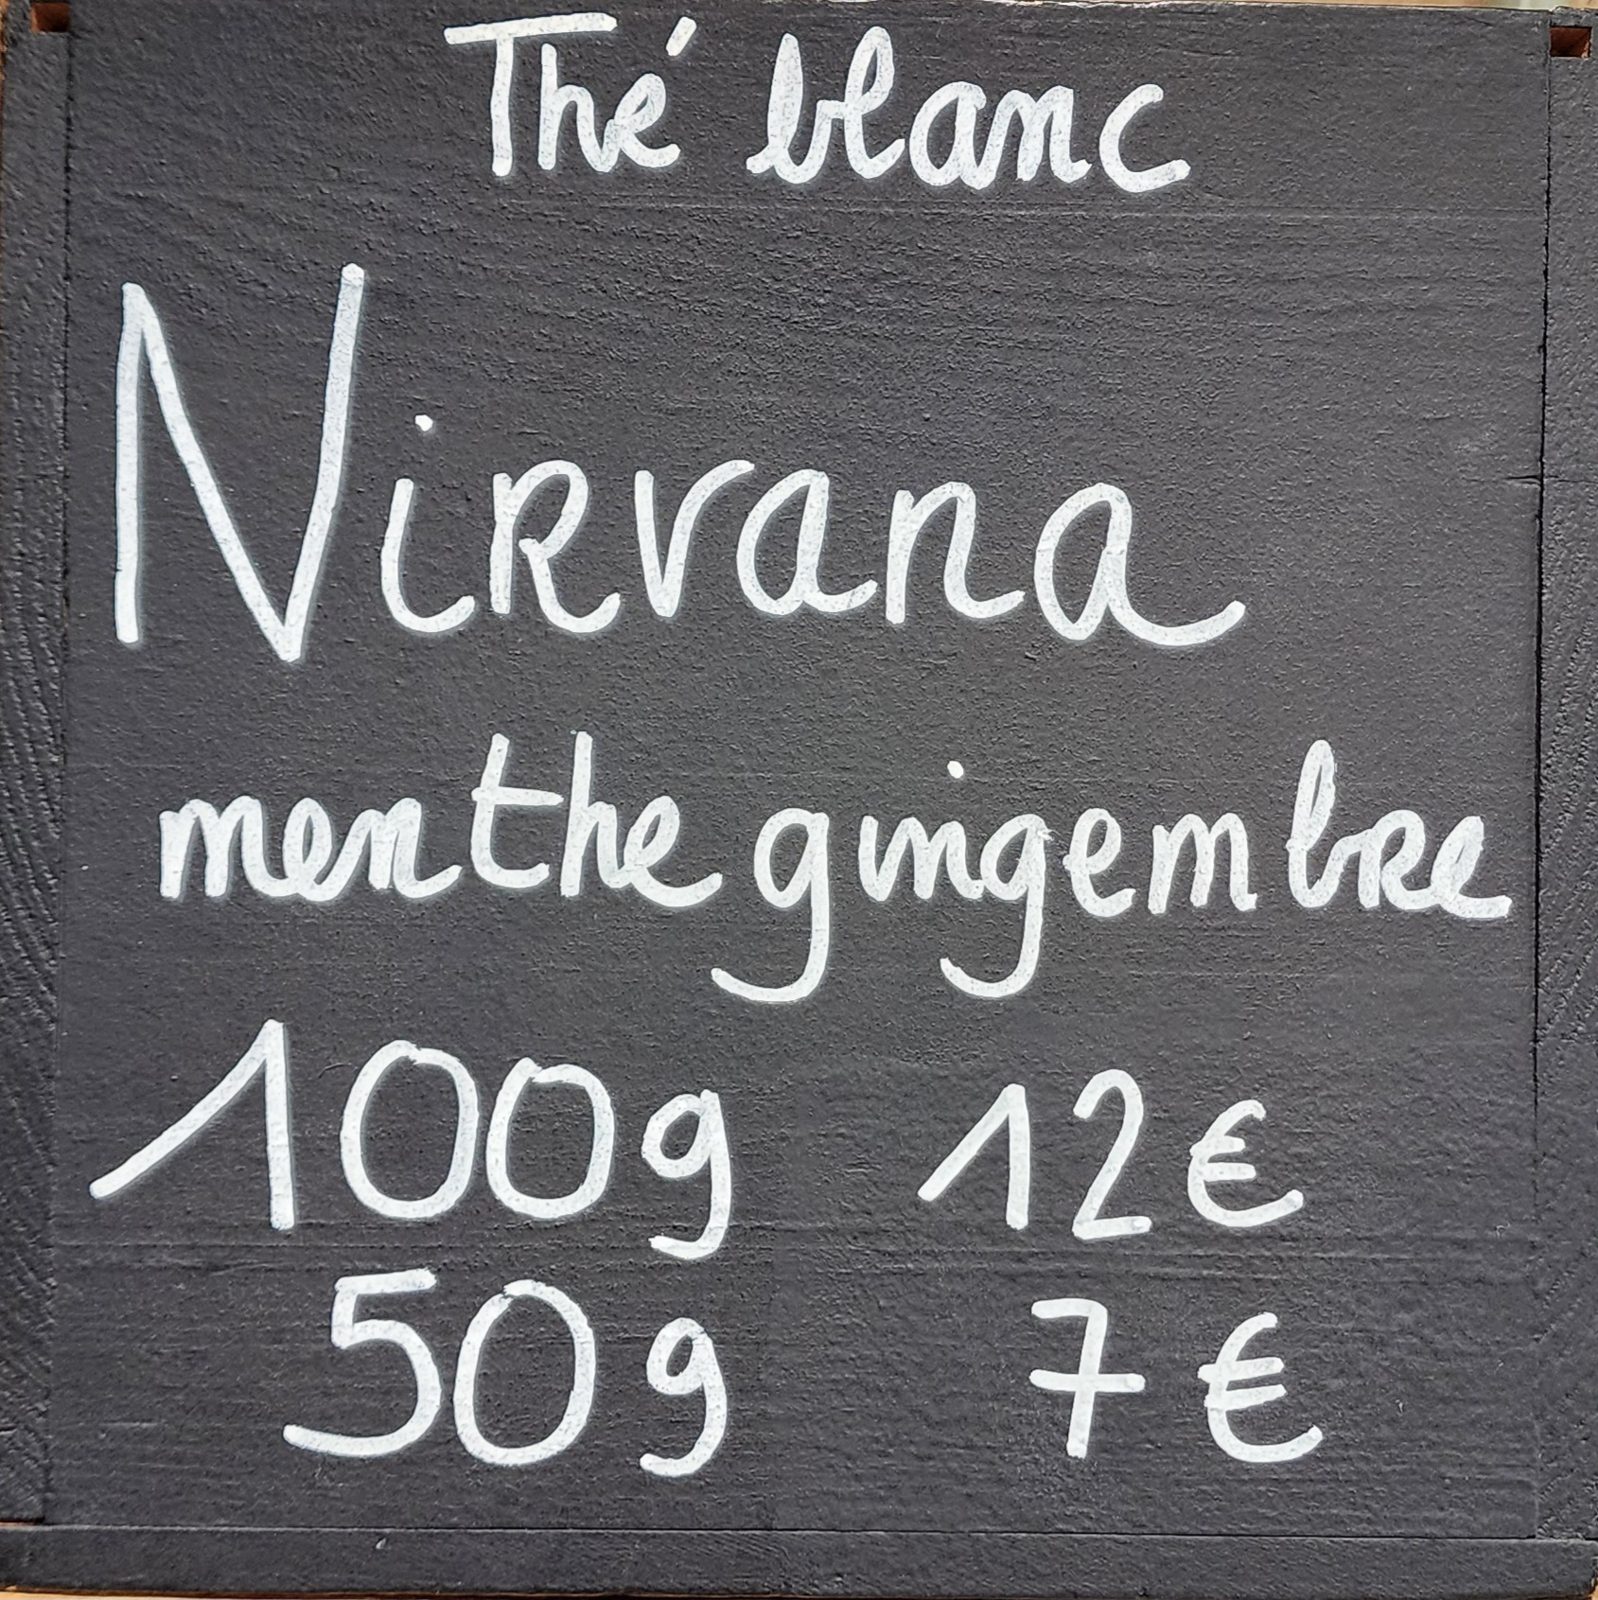 Thé blanc
Nirvana
menthe gingembre
100g 12€
50g 7€